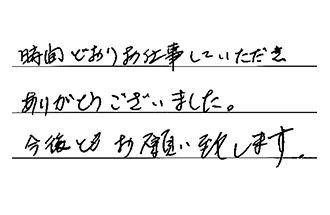 時間どおりお仕事していただき
ありがとうございました。
今後ともお願い致します。